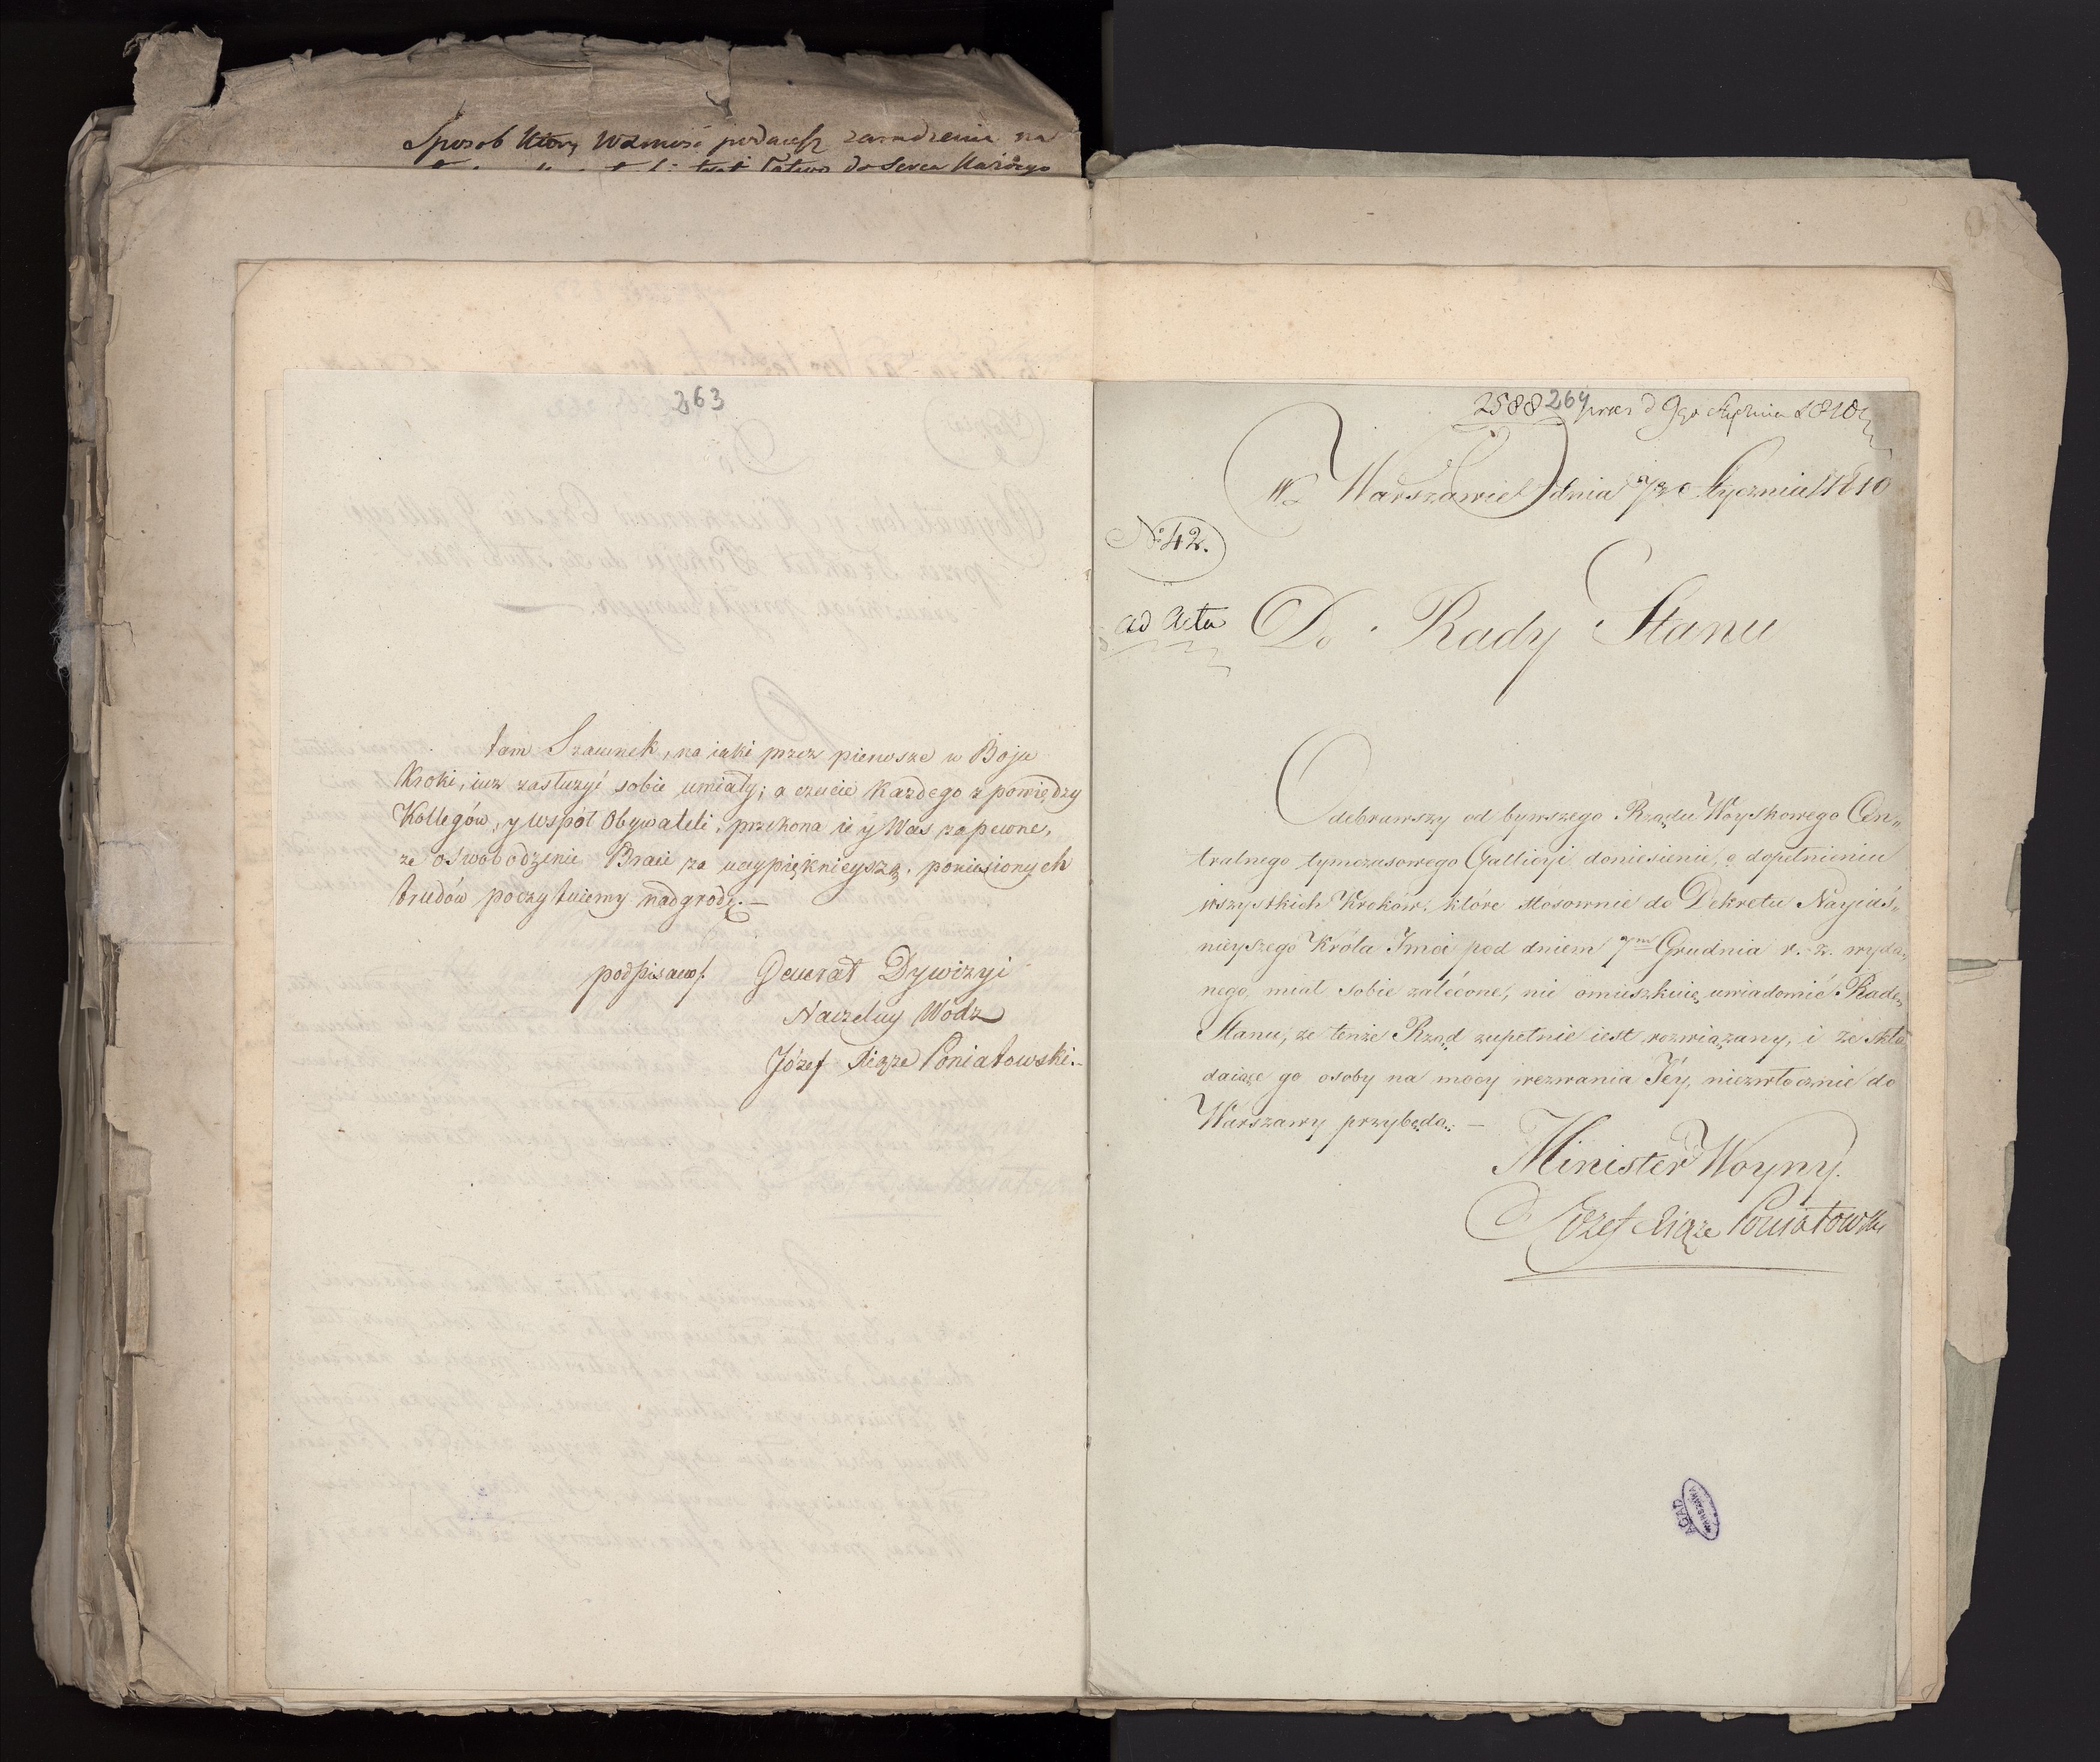 Sposob który Wzmość podaiesz zaradzenia na
łatwo do Serca każdego
263
tam Szacunek, na iaki przez pierwsze w Boju
Kroki, iuż zasłużyć sobie umiały; a czucie każdego z pomiędzy
Kollegów, y wspól Obywateli, przekona ie y Was zapewne,
że oswobodzenie Braci za naypięknieyszą, poniesionych
trudów poczytuiemy nadgrodę.—
podpisano/. Generał Dywizyi
Naczelny Wódz
Józef Xiąże Poniatowski.
2588 264 praes d 9go Stycznia 1810
W Warszawie dnia 7go Stycznia 1810
No 42.
ad Acta
Do Rady Stanu
Odebrawszy od bywszego Rządu Woyskowego Cen„
tralnego tymczasowego Gallicyi doniesienie, o dopełnieniu
wszystkich Kroków, które stósownie do Dekretu Nayiaś„
nieyszego Króla Jmci pod dniem 7m Grudnia r. z. wyda„
nego, miał sobie zalécone, nie omieszkuię uwiadomić Radę
Stanu, że tenże Rząd zupełnie iest rozwiązany, i że skła
daiące go osoby na mocy wezwania Jéy, niezwłocznie do
Warszawy przybędą. —
Minister Woyny.
Józef Xiąże Poniatowski
AGAD
WARSZAWA